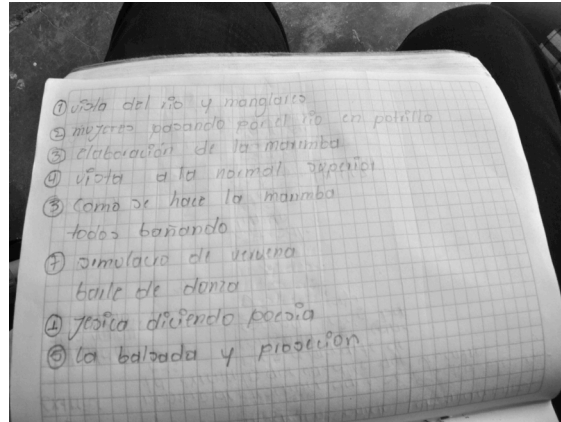 ① vista del rio y manglares
② mujeres pasando por el rio en potrillo
③ elaboración de la marimba
④ vista a la normal superior
⑤ como se hace la marimba
todos bañando
⑦ simulacro de verbena
baile de danza
① Jesica diciendo poesia
⑤ la balsada y proseción